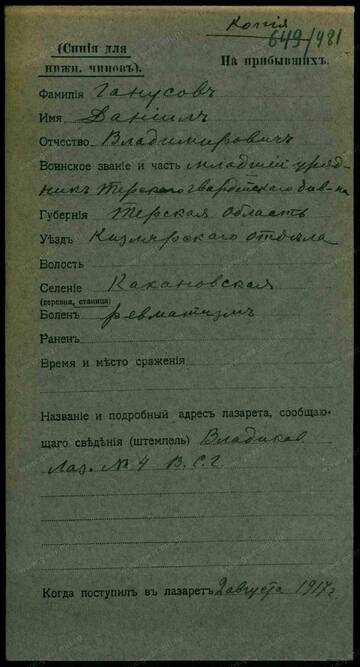 Копія
649/481
(Синія для
нижн. чиновъ).
На прибывшихъ.
Фамилія Ганусовъ
Имя Даніилъ
Отчество Владимировичъ
Воинское званіе и часть младшій уряд-
никъ Терскаго гвардейскаго див-на
Губернія Терская область
Уѣздъ Кизлярскаго отдѣла
Волость
Селеніе Кахановская
(деревня, станица)
Боленъ ревматизмъ
Раненъ
Время и мѣсто сраженія
Названіе и подробный адресъ лазарета, сообщаю-
щаго свѣдѣнія (штемпель) Владикав.
Лаз. № 4 В. С. Г.
Когда поступилъ въ лазаретъ 2 августа 1917 г